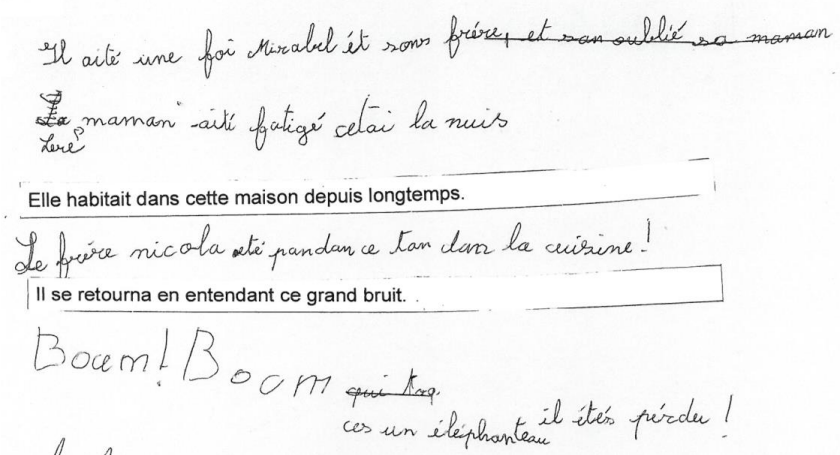 Il aité une foi Mirabel ét sons frére, et san oublié sa maman
maman aité fatigé cetai la nuis
Leré
Elle habitait dans cette maison depuis longtemps.
Le frére nicola eté pandan ce tan dan la cuisine!
Il se retourna en entendant ce grand bruit.
Boum! Boom qui
ces un éléphanteau il étés pérdu!